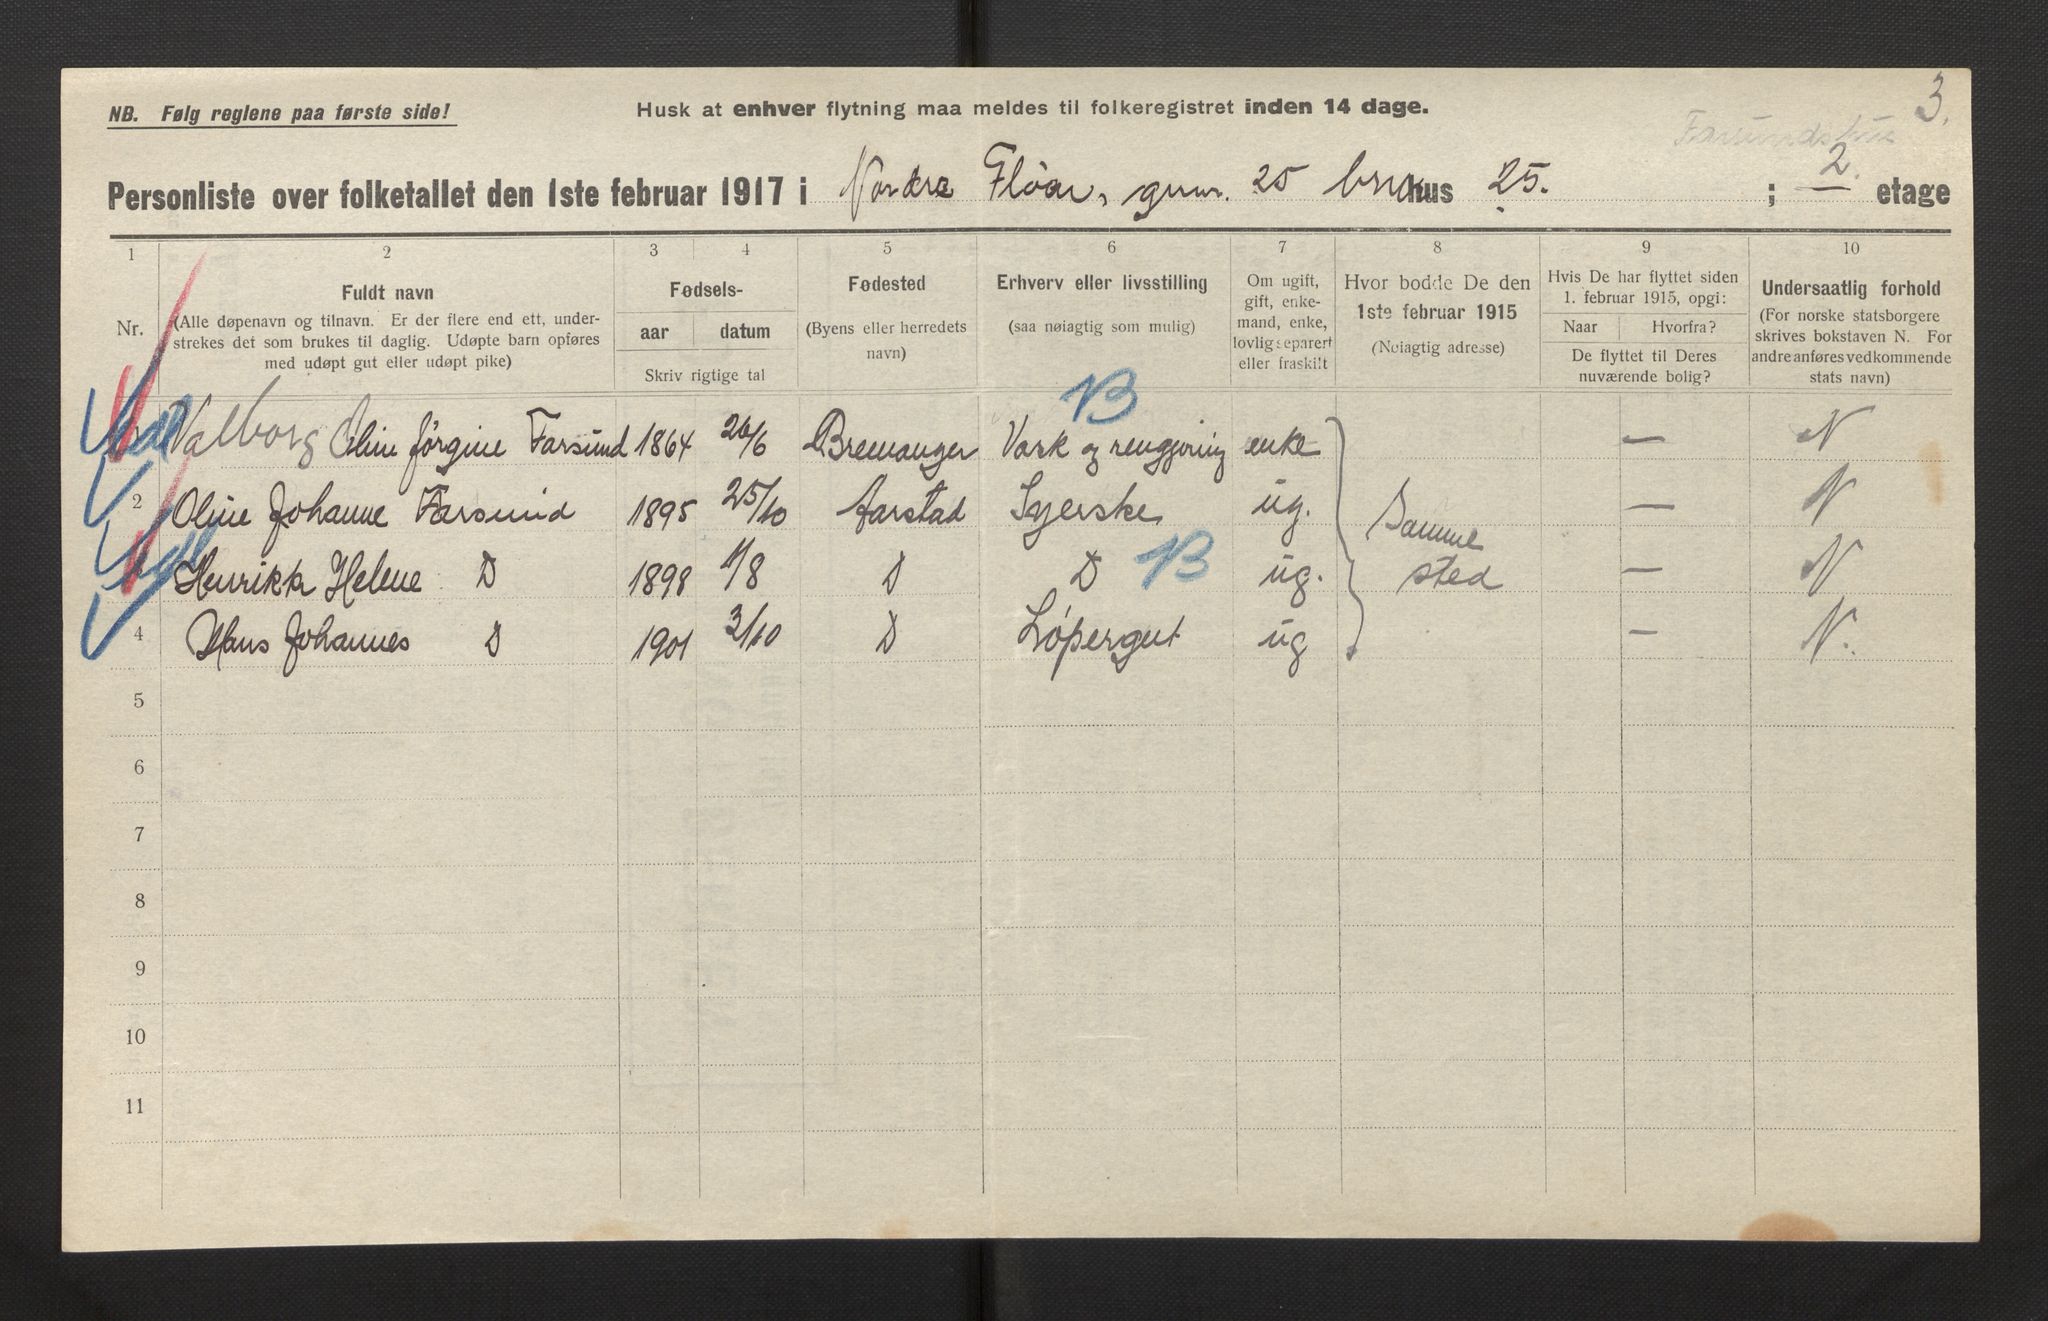 3.
NB. Følg reglene paa første side! Husk at enhver flytning maa meldes til folkeregistret inden 14 dage.
Farsundshus
Personliste over folketallet den 1ste februar 1917 i Nordre Fløen, gnm. 25 brn hus 25. ; 2. etage
1 2 3 4 5 6 7 8 9 10
Nr.
Fuldt navn
(Alle døpenavn og tilnavn. Er der flere end ett, under-
strekes det som brukes til daglig. Udøpte barn opføres
med udøpt gut eller udøpt pike)
Fødsels-
aar datum
Skriv rigtige tal
Fødested
(Byens eller herredets
navn)
Erhverv eller livsstilling
(saa nøiagtig som mulig)
Om ugift,
gift, enke-
mand, enke,
lovlig separert
eller fraskilt
Hvor bodde De den
1ste februar 1915
(Nøiagtig adresse)
Hvis De har flyttet siden
1. februar 1915, opgi:
Naar Hvorfra?
De flyttet til Deres
nuværende bolig?
Undersaatlig forhold
(For norske statsborgere
skrives bokstaven N. For
andre anføres vedkommende
stats navn)
B
Valborg Oline Jörgine Farsund 1864 26/6 Bremanger Vask og rengjøring enke — N
2 Oline Johanne Farsund 1895 25/10 Aarstad Syerske ug. Samme — N
Henrikka Helene D 1898 1/8 D D B ug. sted — N
4 Hans Johannes D 1901 3/10 D Löpergut ug — N.
5
6
7
8
9
10
11